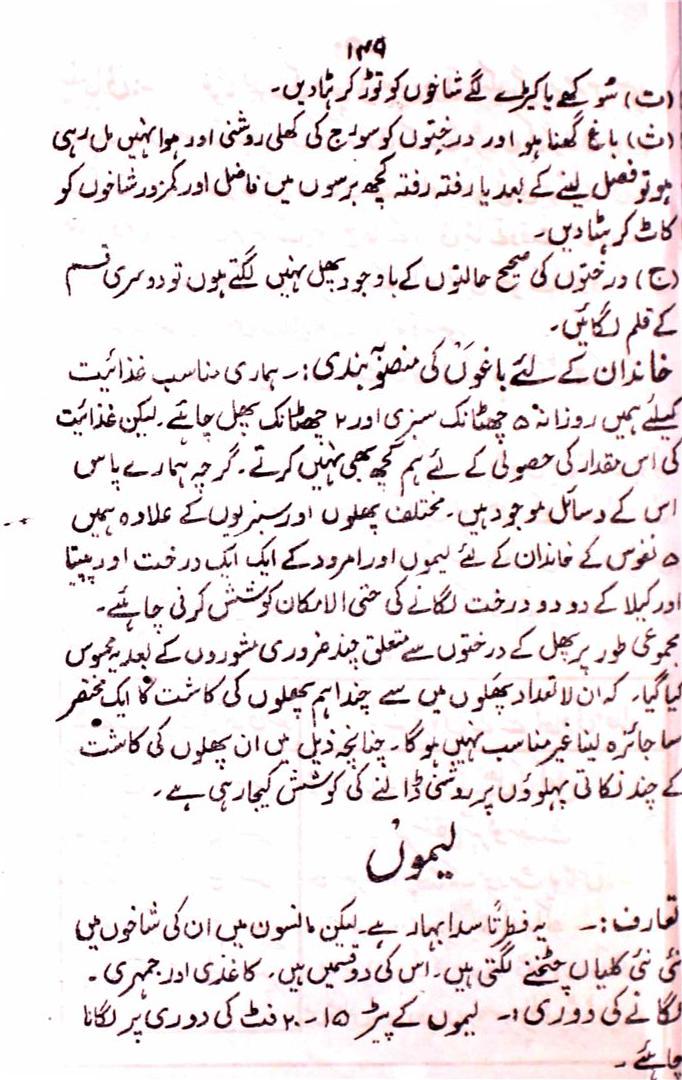 ۱۴۹
(ت) سُوکھے یا کیڑے لگے شاخوں کو توڑ کر ہٹا دیں۔
(ث) باغ گھنا ہو اور درختوں کو سورج کی کھلی روشنی اور ہوا نہیں مل رہی
ہو تو فصل لینے کے بعد یا رفتہ رفتہ کچھ برسوں میں فاضل اور کمزور شاخوں کو
کاٹ کر ہٹا دیں۔
(ج) درختوں کی صحیح حالتوں کے باوجود پھل نہیں لگتے ہوں تو دوسری قسم
کے قلم لگائیں۔
خاندان کے لئے باغوں کی منصوبہ بندی:۔ ہماری مناسب غذائیت
کیلئے ہمیں روزانہ ۵ چھٹانک سبزی اور ۲ چھٹانک پھل چاہئے۔ لیکن غذائیت
کی اس مقدار کی حصولی کے لئے ہم کچھ بھی نہیں کرتے۔ گرچہ ہمارے پاس
اس کے وسائل موجود ہیں۔ مختلف پھلوں اور سبزیوں کے علاوہ ہمیں
۵ نفوس کے خاندان کے لئے لیموں اور امرود کے ایک ایک درخت اور پپیتا
اور کیلا کے دو دو درخت لگانے کی حتی الامکان کوشش کرنی چاہئے۔
مجموعی طور پر پھل کے درختوں سے متعلق چند ضروری مشوروں کے بعد یہ محسوس
کیا گیا۔ کہ ان لاتعداد پھلوں میں سے چند اہم پھلوں کی کاشت کا ایک مختصر
سا جائزہ لینا غیر مناسب نہیں ہو گا۔ چنانچہ ذیل میں ان پھلوں کی کاشت
کے چند نکاتی پہلوؤں پر روشنی ڈالنے کی کوشش کیجا رہی ہے۔
لیموں
تعارف:۔ یہ فطرتاً سدا بہار ہے۔ لیکن مانسون میں ان کی شاخوں میں
نئی نئی کلیاں چٹخنے لگتی ہیں۔ اس کی دو قسمیں ہیں۔ کاغذی اور جمہری۔
لگانے کی دوری:۔ لیموں کے پیڑ ۱۵-۲۰ فٹ کی دوری پر لگانا
چاہئے۔